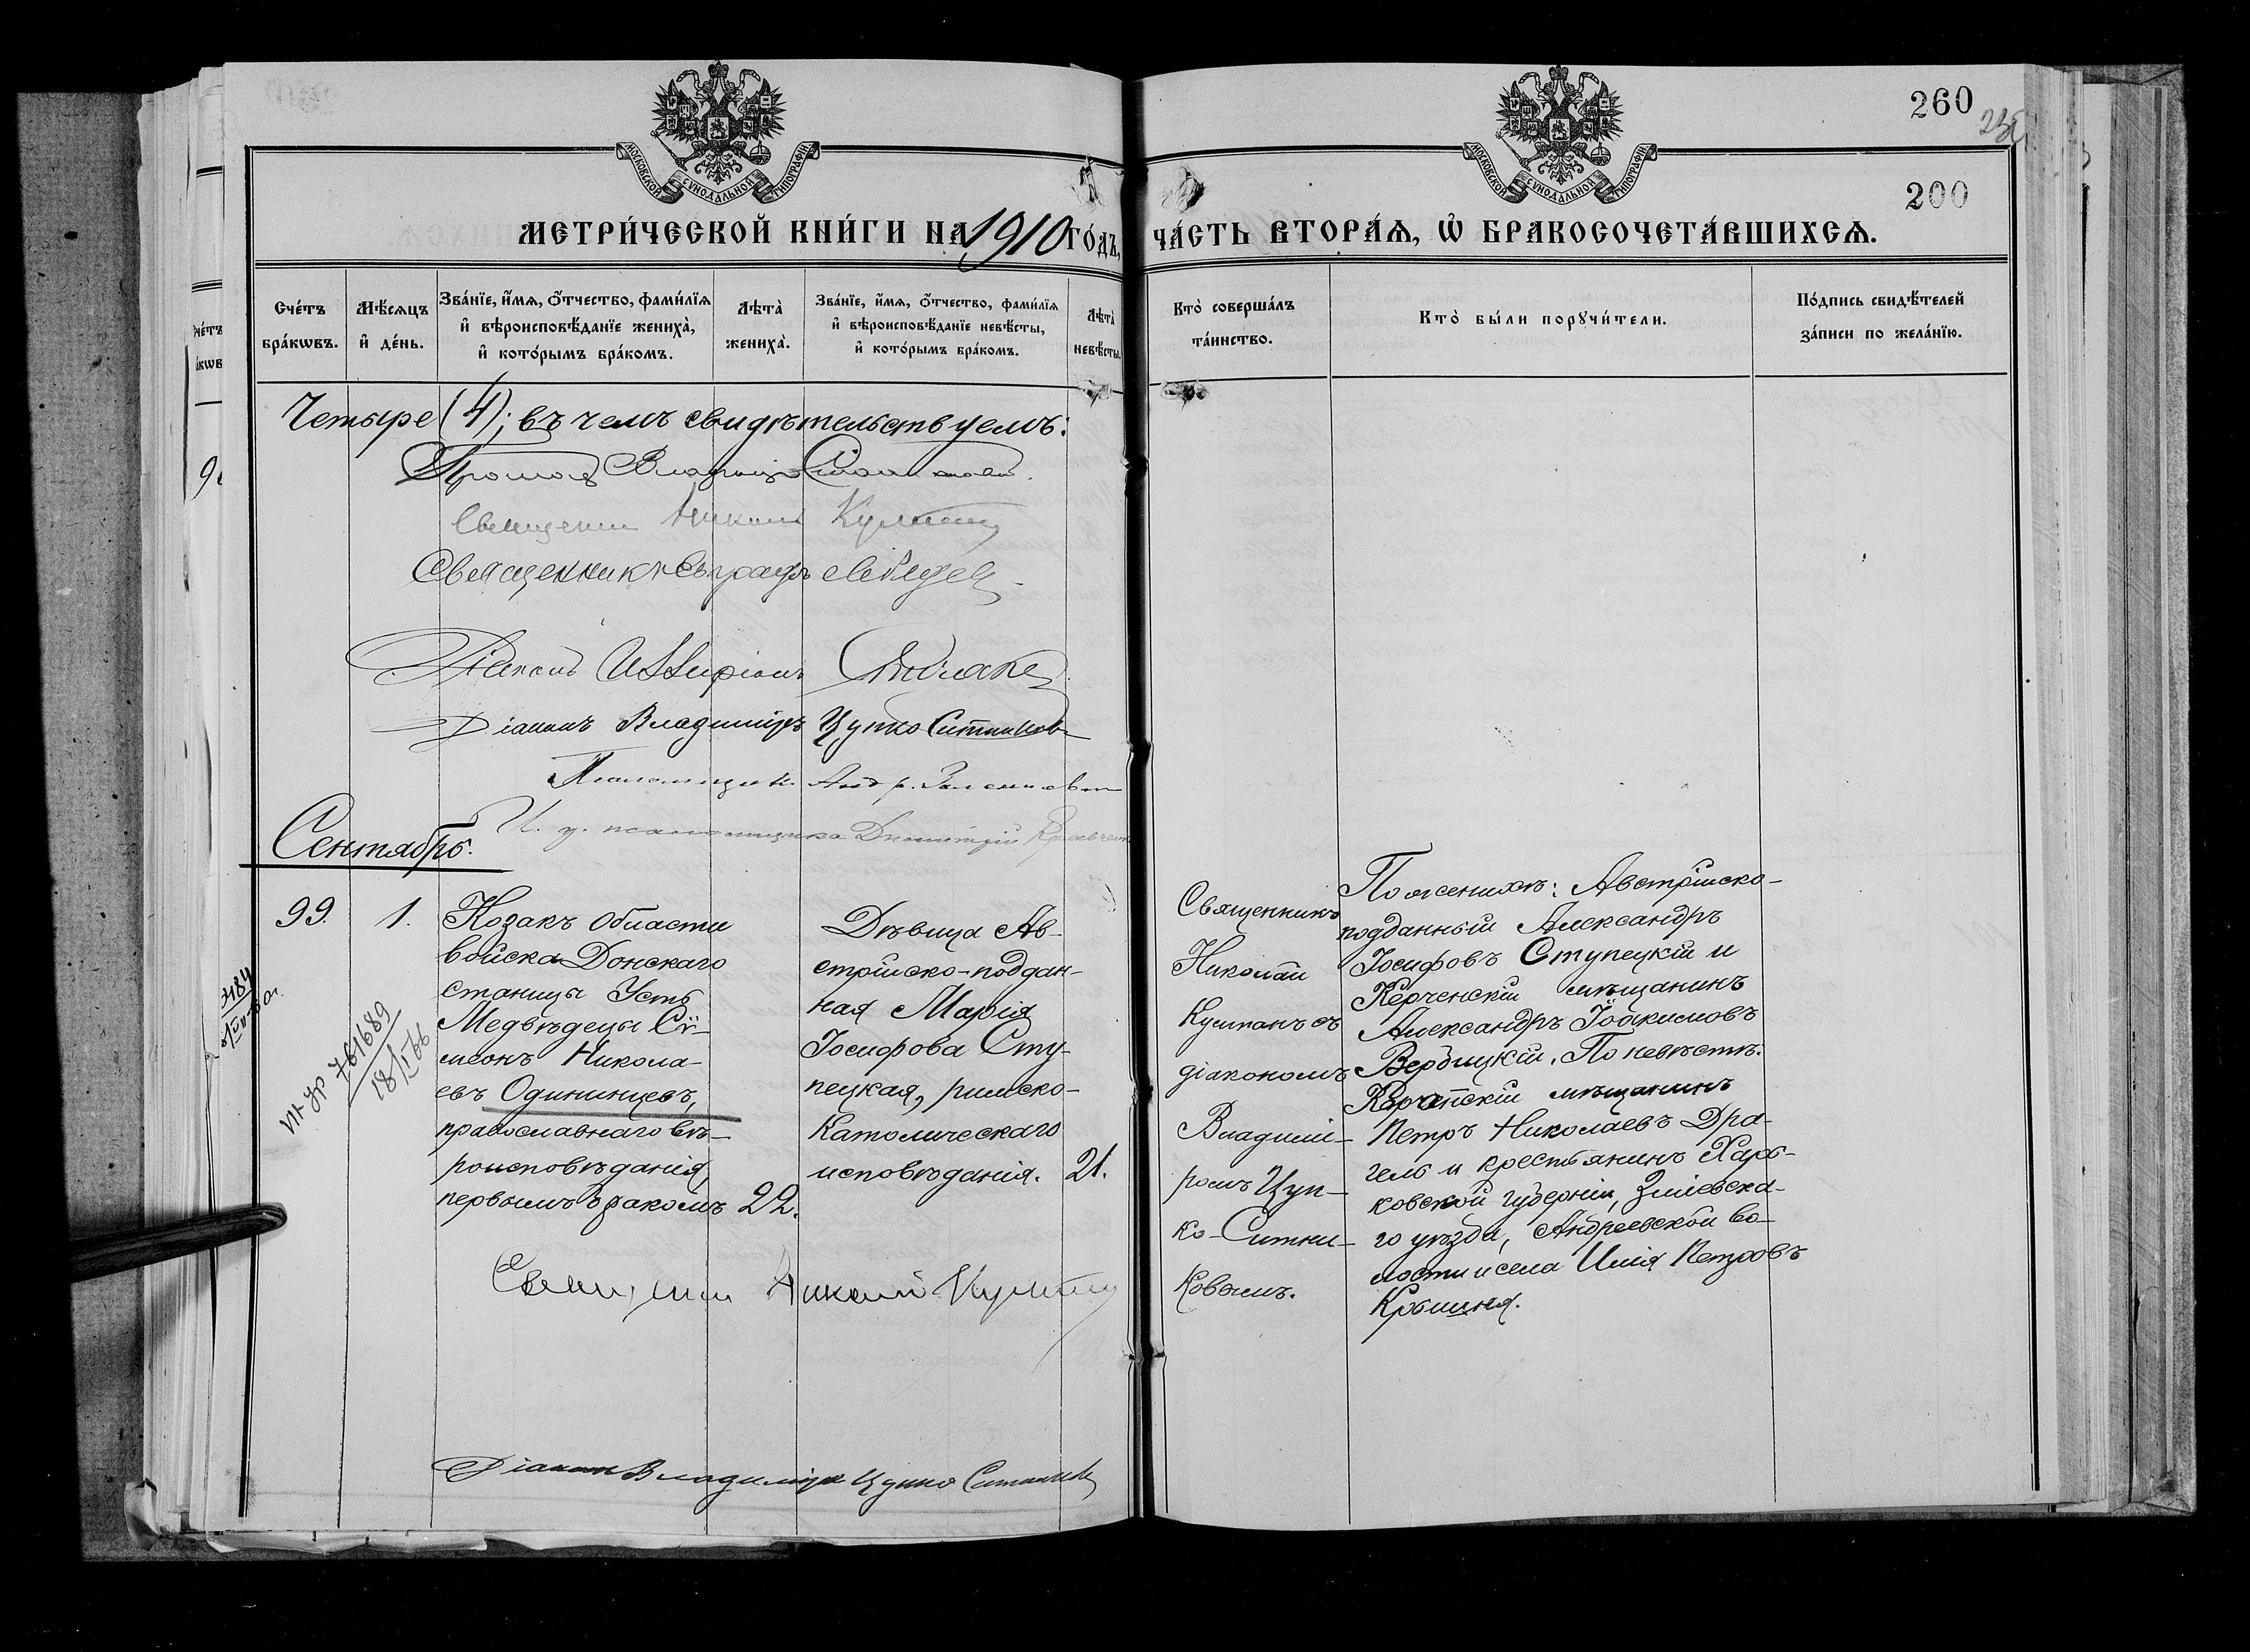 260
200
МОСКОВСКОЙ СѴНОДАЛЬНОЙ ТИПОГРАФІИ
МОСКОВСКОЙ СѴНОДАЛЬНОЙ ТИПОГРАФІИ
МЕТРИ́ЧЕСКОЙ КНИ́ГИ НА 1910 ГО́ДЪ,
ЧА́СТЬ ВТОРА́Ѧ, Ѡ҆ БРАКОСОЧЕТА́ВШИХСѦ.
Сче́тъ
бра́кѡвъ.
Мѣ́сѧцъ
и҆ де́нь.
Зва́нїе, и҆́мѧ, ѻ҆́тчество, фами́лїѧ
и҆ вѣроисповѣ́данїе жениха̀,
и҆ кото́рымъ бра́комъ.
Лѣта̀
жениха̀.
Зва́нїе, и҆́мѧ, ѻ҆́тчество, фами́лїѧ
и҆ вѣроисповѣ́данїе невѣ́сты,
и҆ кото́рымъ бра́комъ.
Лѣта̀
невѣ́сты.
Кто̀ соверша́лъ
та́инство.
Кто̀ бы́ли порꙋчи́тели.
По́дпись свидѣ́телей
за́писи по жела́нїю.
Четыре (4); въ чемъ свидѣтельствуемъ:
Священникъ Лебедев
Діаконъ
Діаконъ Владиміръ Цупко Ситников
Псаломщик
И. д. псаломщика Димитрій Кравченко
Сентябрь.
99.
1.
Козакъ области
войска Донскаго
станицы Усть
Медвѣдецы Сѵ-
меонъ Никола-
евъ Одининцевъ,
православнаго вѣ-
роисповѣданія,
первымъ бракомъ
22.
Дѣвица Ав-
стрійско-поддан-
ная Марія
Іосифова Сту-
пецкая, римско-
католическаго
исповѣданія.
21.
Священникъ
Николай
Кулпанъ съ
діакономъ
Владимі-
ромъ Цуп-
ко-Ситни-
ковымъ.
По женихѣ: Австрійско-
подданный Александръ
Іосифовъ Ступецкій и
Керченскій мѣщанинъ
Александръ Іоакимовъ
Вербицкій. По невѣстѣ:
Керченскій мѣщанинъ
Петръ Николаевъ Дра-
гель и крестьянинъ Харь-
ковской губерніи, Зміевска-
го уѣзда, Андреевской во-
лости и села Илія Петровъ
761689
18/I 66
Діаконъ Владиміръ Цупко Ситников